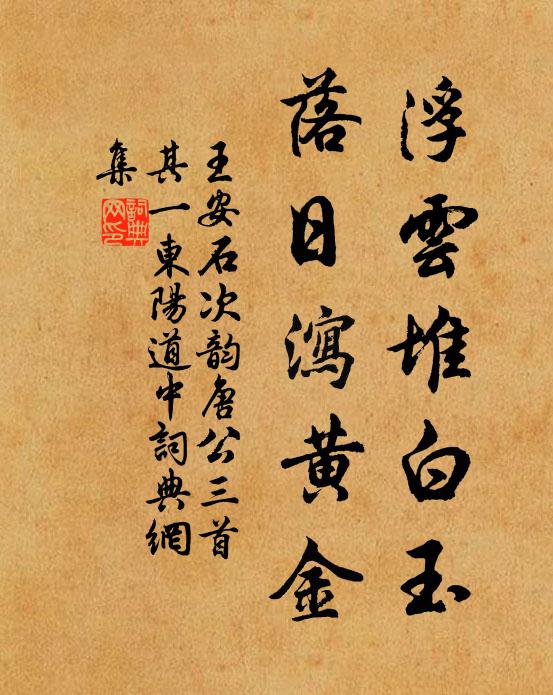 浮雲堆白玉
落日瀉黃金
王安石次韵唐公三首
其一東陽道中詞典網
集
詞典
网印